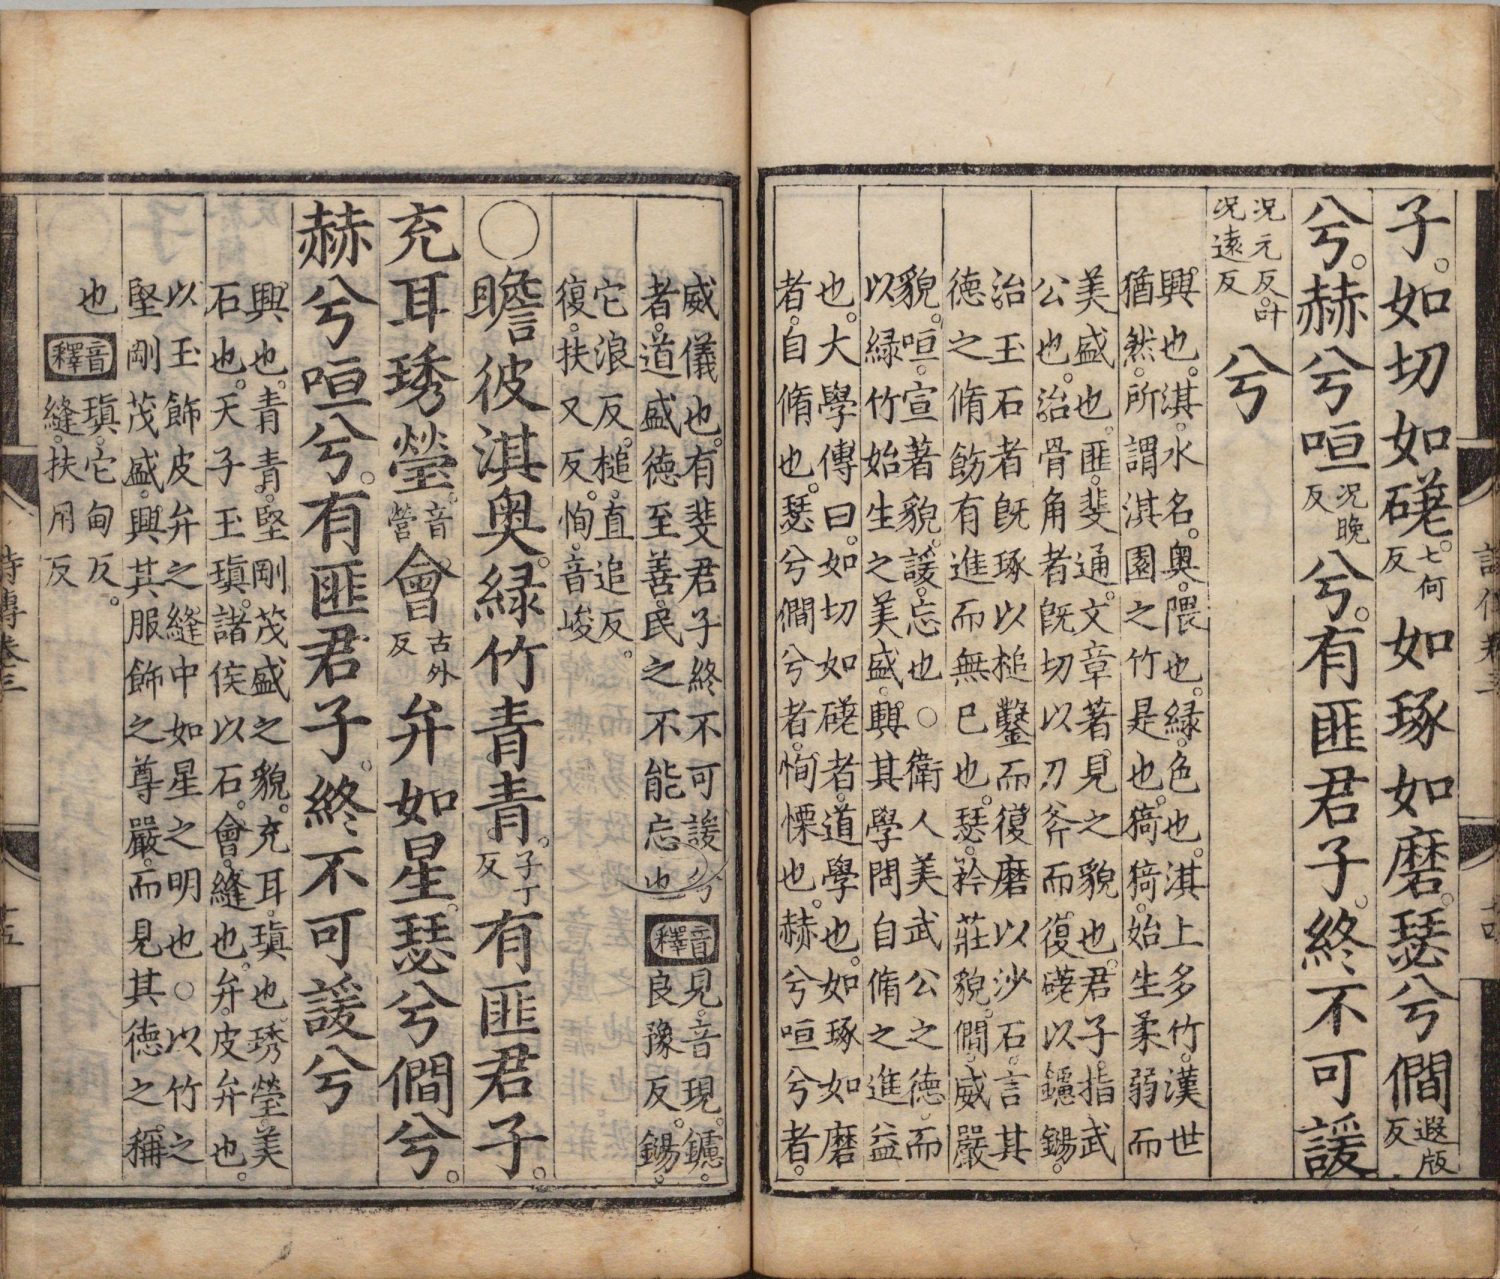 子如切如磋七何反如琢如磨瑟兮僩遐版反
兮赫兮咺況晚反兮有匪君子終不可諼
況元反叶況遠反兮
興也淇水名奥隈也緑色也淇上多竹漢世
猶然所謂淇園之竹是也猗猗始生柔弱而
美盛也匪斐通文章著見之貌也君子指武
公也治骨角者既切以刀斧而復磋以鑢鐋
治玉石者既琢以槌鑿而復磨以沙石言其
德之脩飭有進而無已也瑟矜莊貌僩威嚴
貌咺宣著貌諼忘也○衛人美武公之德而
以緑竹始生之美盛興其學問自脩之進益
也大學傳曰如切如磋者道學也如琢如磨
者自脩也瑟兮僩兮者恂慄也赫兮咺兮者
威儀也有斐君子終不可諼兮
者道盛德至善民之不能忘也釋音見音現鑢
良豫反鐋
它浪反槌直追反
復扶又反恂音峻
○瞻彼淇奥緑竹青青子丁反有匪君子
充耳琇瑩音營會古外反弁如星瑟兮僩兮
赫兮咺兮有匪君子終不可諼兮
興也青青堅剛茂盛之貌充耳瑱也琇瑩美
石也天子玉瑱諸侯以石會縫也弁皮弁也
以玉飾皮弁之縫中如星之明也○以竹之
堅剛茂盛興其服飾之尊嚴而見其德之稱
也釋音瑱它甸反
縫扶用反
詩傳卷三
十五